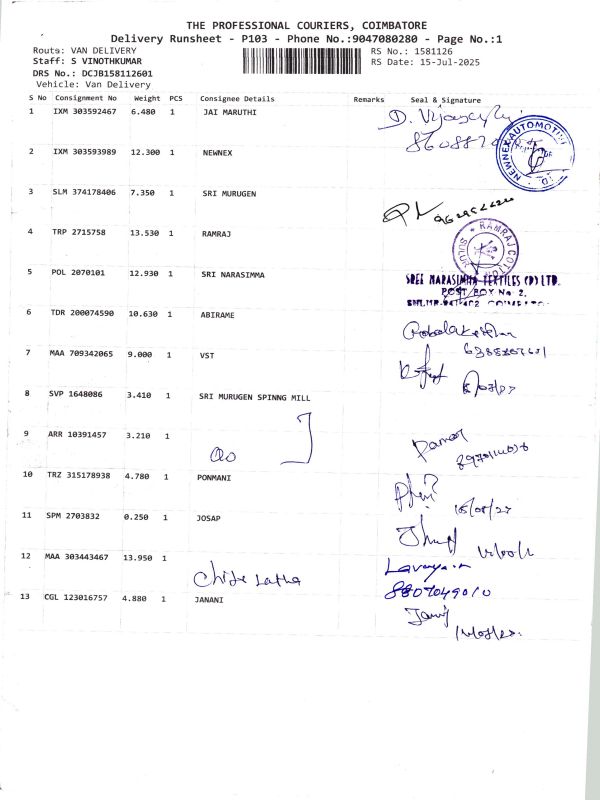 THE PROFESSIONAL COURIERS, COIMBATORE
Delivery Runsheet - P103 - Phone No.:9047080280 - Page No.:1
Route: VAN DELIVERY
Staff: S VINOTHKUMAR
DRS No.: DCJB158112601
Vehicle: Van Delivery
RS No.: 1581126
RS Date: 15-Jul-2025
S No Consignment No Weight PCS Consignee Details Remarks Seal & Signature
1 IXM 303592467 6.480 1 JAI MARUTHI
2 IXM 303593989 12.300 1 NEWNEX
NEWNEX AUTOMOTIVE
3 SLM 374178406 7.350 1 SRI MURUGEN
4 TRP 2715758 13.530 1 RAMRAJ
RAMRAJ COTTON
5 POL 2070101 12.930 1 SRI NARASIMMA
SREE NARASIMHA TEXTILES (P) LTD.
POST BOX No 2,
6 TDR 200074590 10.630 1 ABIRAME
7 MAA 709342065 9.000 1 VST
8 SVP 1648086 3.410 1 SRI MURUGEN SPINNG MILL
9 ARR 10391457 3.210 1
10 TRZ 315178938 4.780 1 PONMANI
11 SPM 2703832 0.250 1 JOSAP
12 MAA 303443467 13.950 1
Lavanya
8807049010
13 CGL 123016757 4.880 1 JANANI